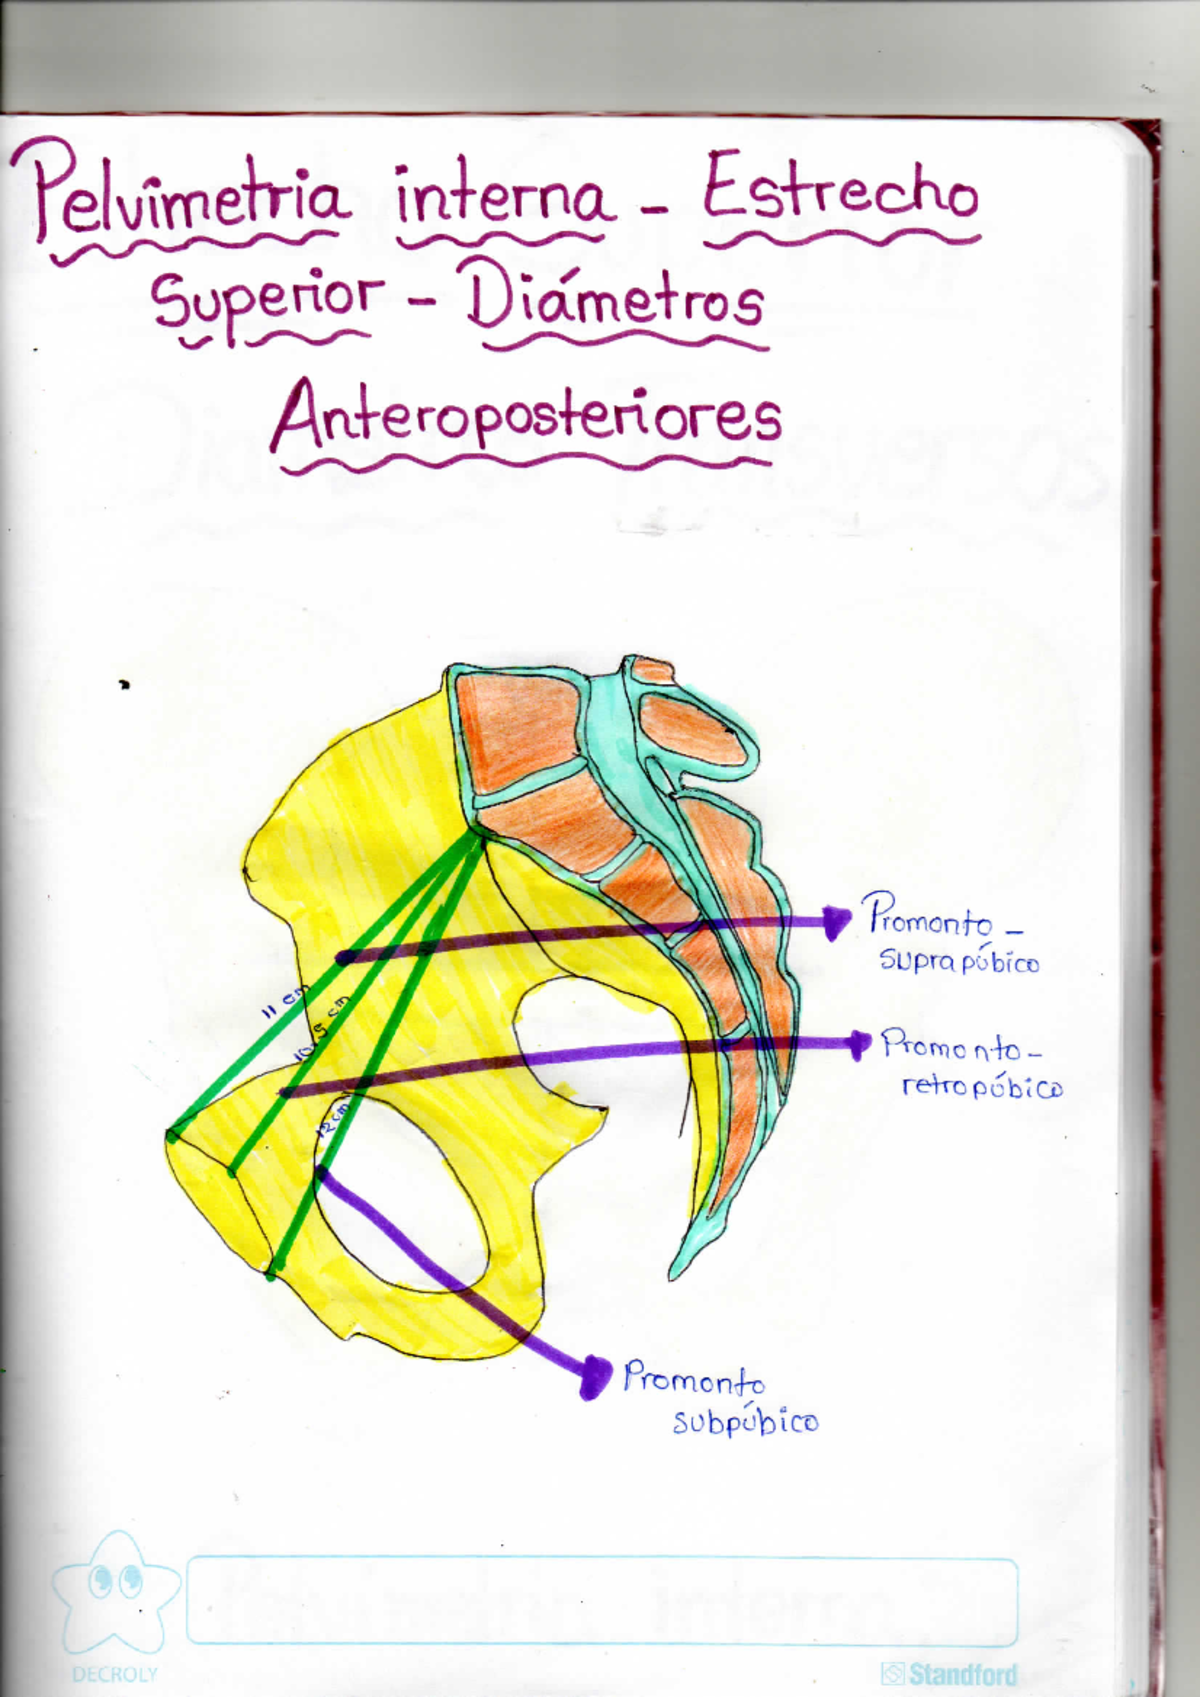 Pelvimetria interna - Estrecho
Superior - Diámetros
Anteroposteriores
Promonto -
suprapúbico
11 cm
10.5 cm
Promonto -
retropúbico
12cm
Promonto
subpúbico
DECROLY
Standford